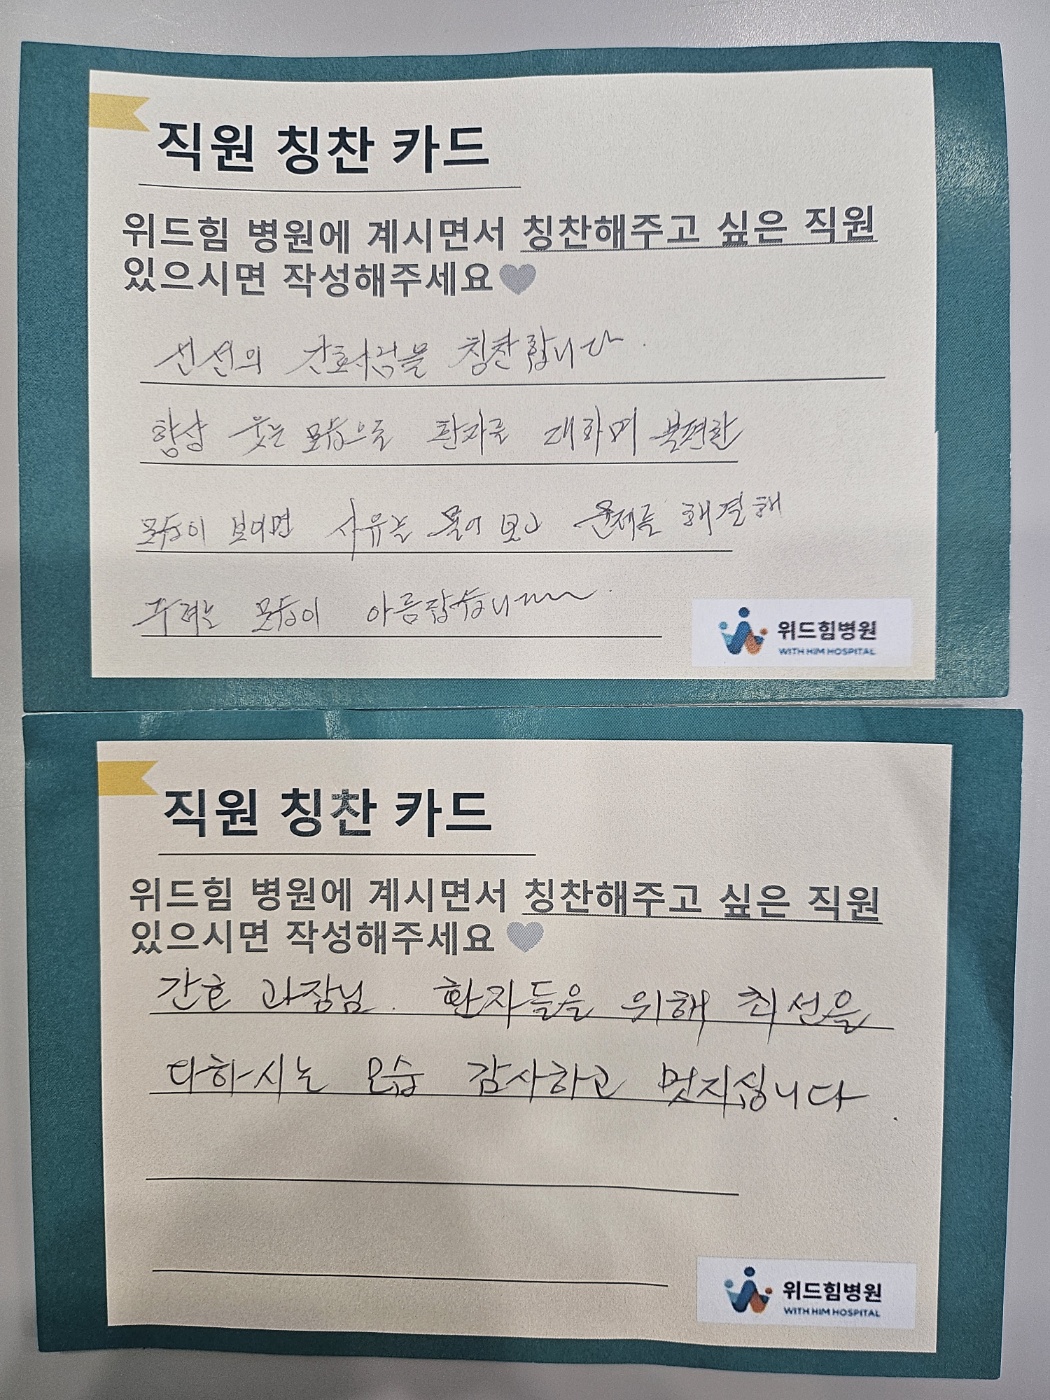 직원 칭찬 카드
위드힘 병원에 계시면서 칭찬해주고 싶은 직원
있으시면 작성해주세요
간호사님을 칭찬합니다.
항상 웃는 모습으로 환자를 대하며 불편한
모습이 보이면 사유를 물어 보고 문제를 해결해
주려는 모습이 아름답습니
위드힘병원
WITH HIM HOSPITAL
직원 칭찬 카드
위드힘 병원에 계시면서 칭찬해주고 싶은 직원
있으시면 작성해주세요
간호 과장님. 환자들을 위해 최선을
다하시는 모습 감사하고 멋지십니다.
위드힘병원
WITH HIM HOSPITAL